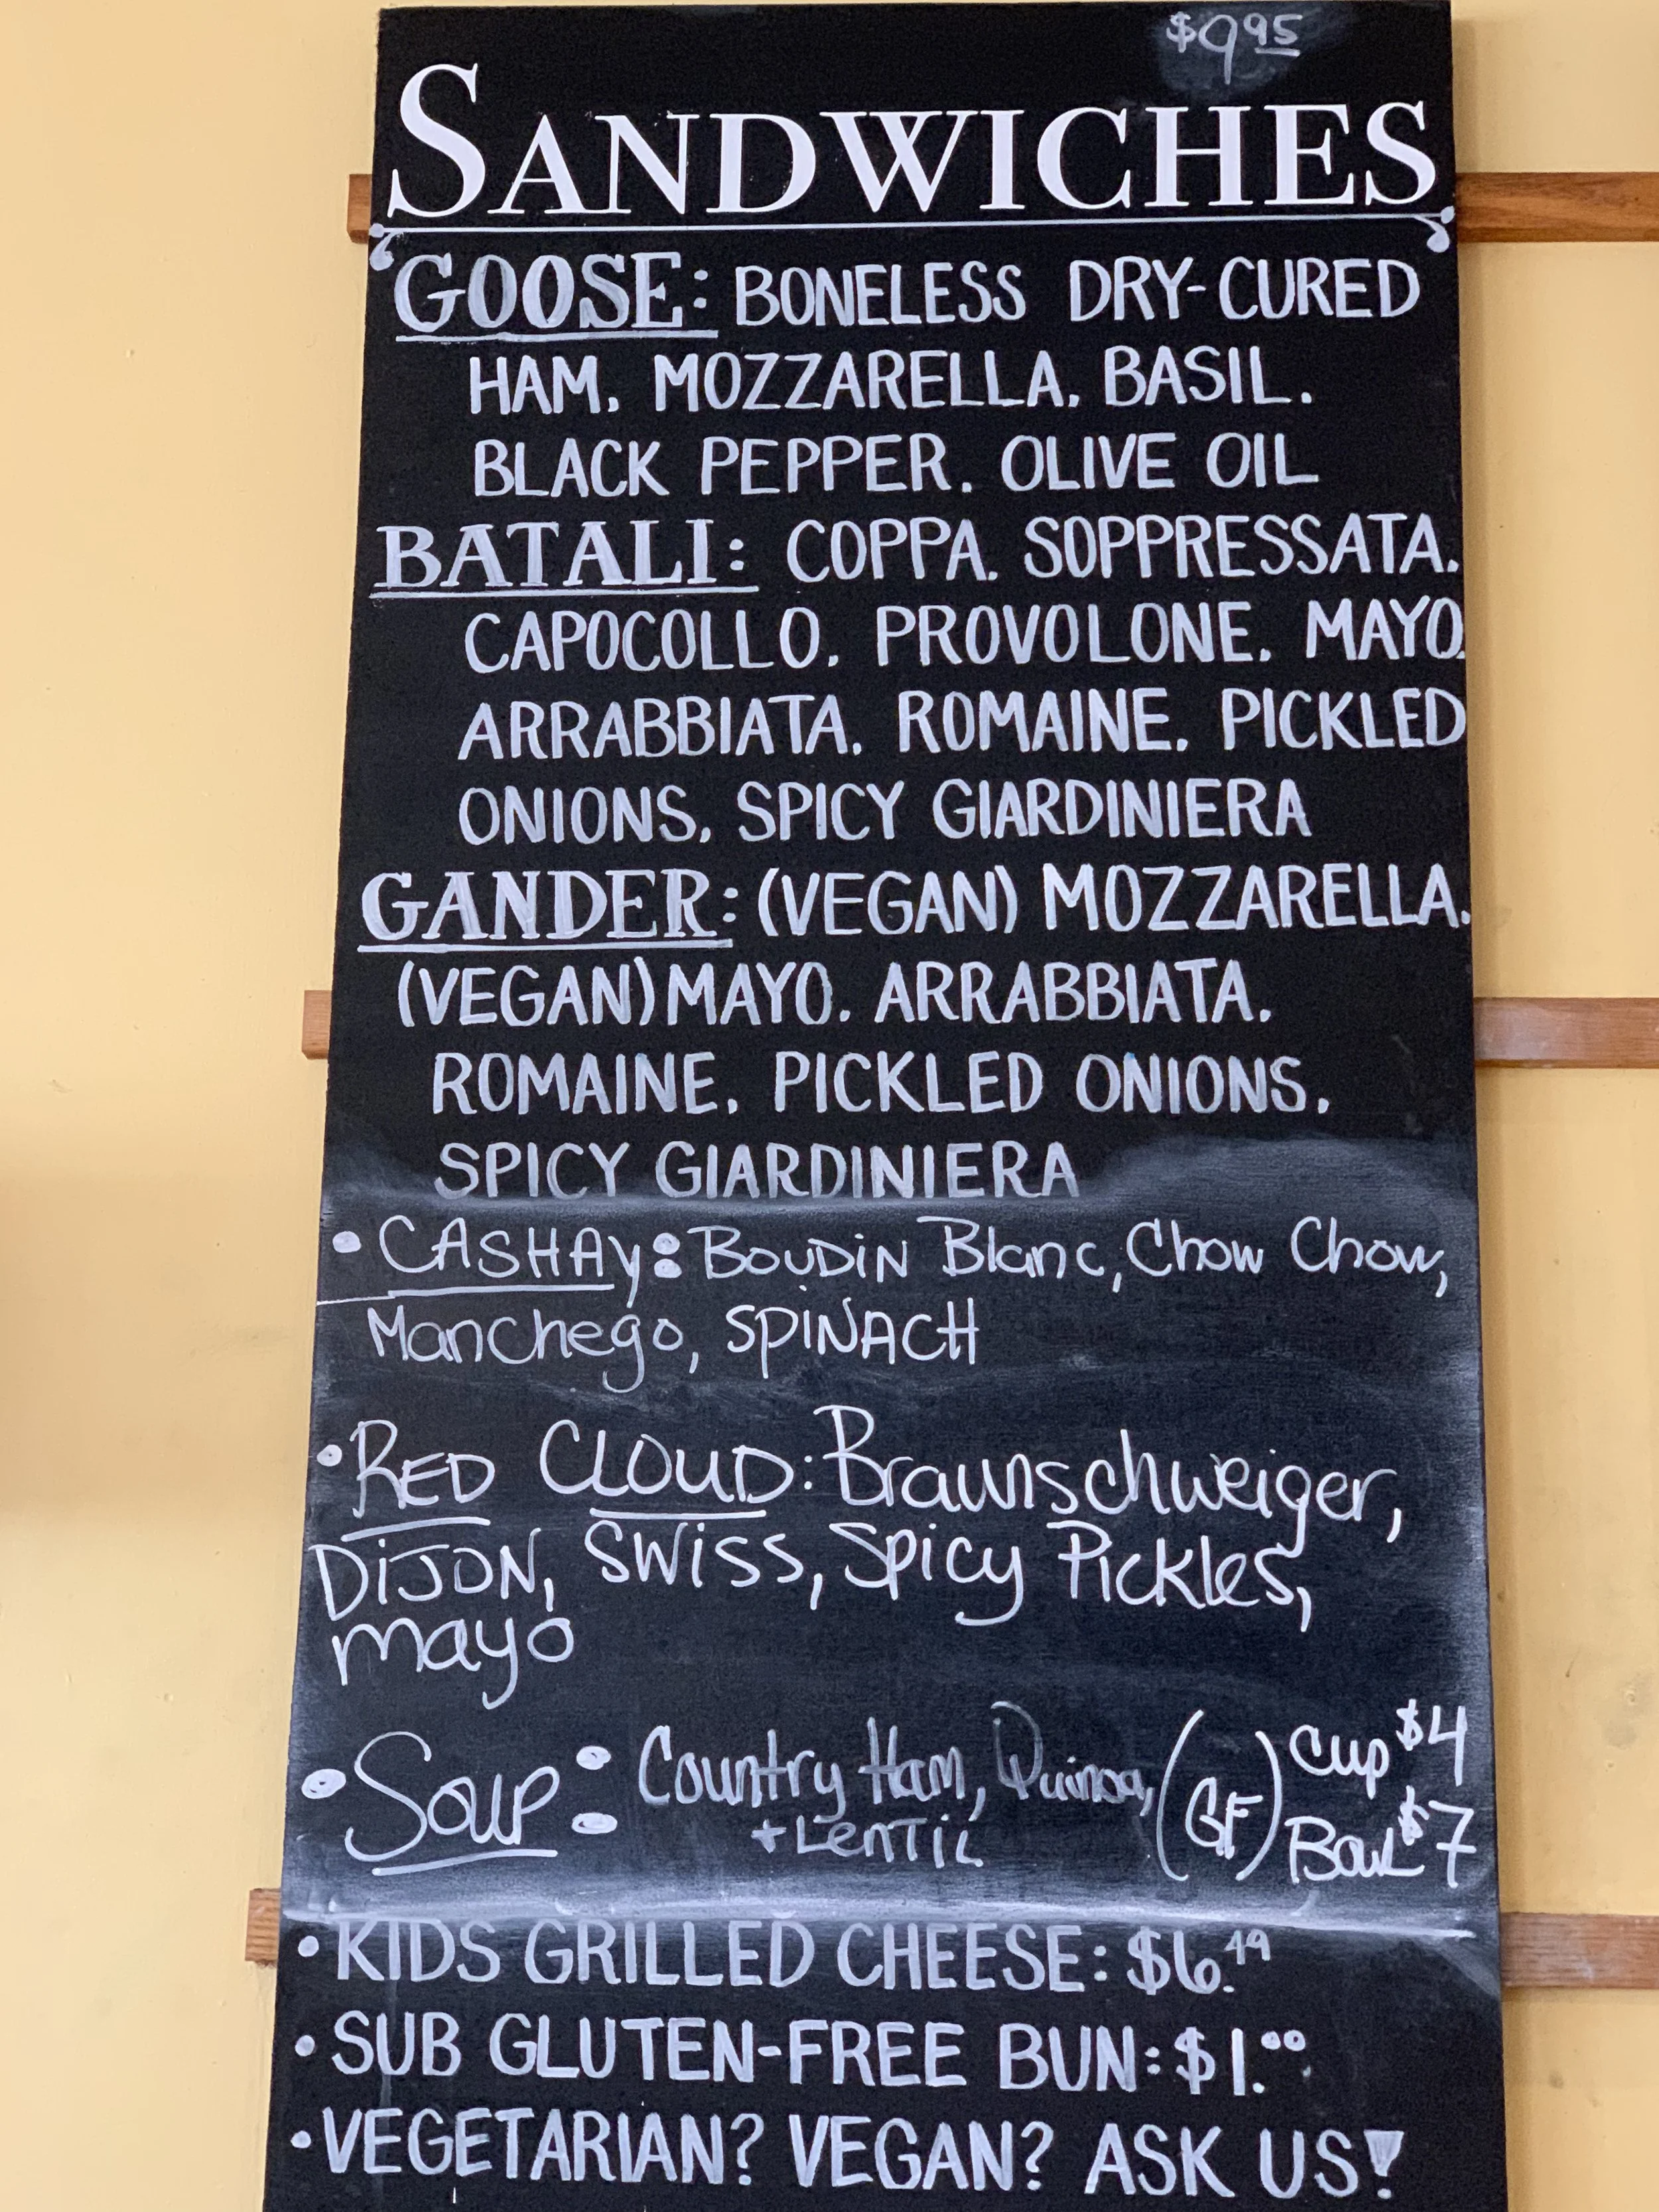 $9.95
SANDWICHES
GOOSE: BONELESS DRY-CURED
HAM. MOZZARELLA. BASIL.
BLACK PEPPER. OLIVE OIL
BATALI: COPPA. SOPPRESSATA.
CAPOCOLLO. PROVOLONE. MAYO.
ARRABBIATA. ROMAINE. PICKLED
ONIONS. SPICY GIARDINIERA
GANDER: (VEGAN) MOZZARELLA.
(VEGAN) MAYO. ARRABBIATA.
ROMAINE. PICKLED ONIONS.
SPICY GIARDINIERA
• CASHAY: BOUDIN Blanc, Chow Chow,
Manchego, SPINACH
• RED CLOUD: Braunschweiger,
DIJON, SWISS, Spicy Pickles,
mayo
• Soup: Country Ham, Quinoa, (GF) Cup $4
+ Lentil Bowl $7
• KIDS GRILLED CHEESE: $6.49
• SUB GLUTEN-FREE BUN: $1.00
• VEGETARIAN? VEGAN? ASK US!